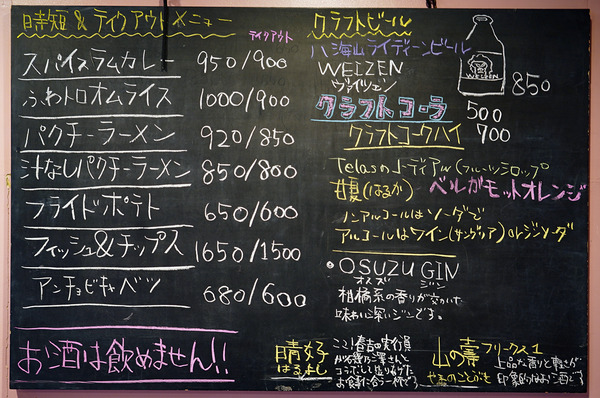 時短&テイクアウトメニュー
テイクアウト
スパイスラムカレー 950/900
ふわトロオムライス 1000/900
パクチーラーメン 920/850
汁なしパクチーラーメン 850/800
フライドポテト 650/600
フィッシュ&チップス 1650/1500
アンチョビキャベツ 680/600
お酒は飲めません!!
クラフトビール
八海山ライディーンビール
WEIZEN
ヴァイツェン
WEIZEN
850
クラフトコーラ 500
クラフトコークハイ 700
Telasのコーディアル(フルーツシロップ
甘夏(はるか) ベルガモットオレンジ
ノンアルコールはソーダで
アルコールはワイン(サングリア)orジンソーダ
OSUZU GIN
オスズ ジン
柑橘系の香りが
味わい深いジンです。
晴好
はるよし
ここ!春吉の実行員
コラボして造りあげた
お食事に合う一杯です
山の壽 フリークス1
やまのことぶき
上品な香りと軽さが
印象的なお酒です